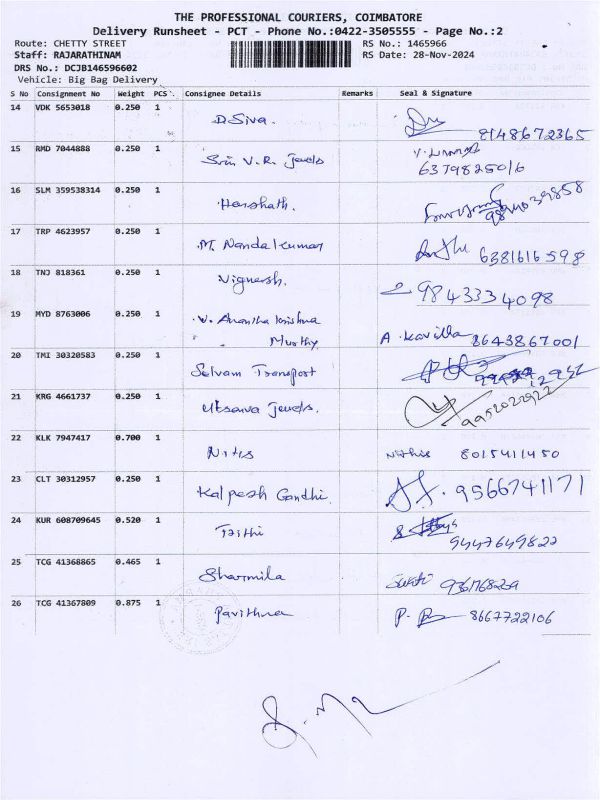 THE PROFESSIONAL COURIERS, COIMBATORE
Delivery Runsheet - PCT - Phone No.:0422-3505555 - Page No.:2
Route: CHETTY STREET RS No.: 1465966
Staff: RAJARATHINAM RS Date: 28-Nov-2024
DRS No.: DCJB146596602
Vehicle: Big Bag Delivery
S No Consignment No Weight PCS Consignee Details Remarks Seal & Signature
14 VDK 5653018 0.250 1 D Siva. 8148672365
15 RMD 7044888 0.250 1 V.R. Jewels 6379825016
16 SLM 359538314 0.250 1 Harshath.
17 TRP 4623957 0.250 1 M. Nandakumar 6381616598
18 TNJ 818361 0.250 1 Vignesh. 9843334098
19 MYD 8763006 0.250 1 V. Anantha Krishna
Murthy A. Kavitha 8643867001
20 TMI 30320583 0.250 1 Selvam Transport
21 KRG 4661737 0.250 1 Utsava Jewels. 9952022922
22 KLK 7947417 0.700 1 Nithis 8015411450
23 CLT 30312957 0.250 1 Kalpesh Gandhi. 9566741171
24 KUR 608709645 0.520 1 9447649822
25 TCG 41368865 0.465 1 Sharmila
26 TCG 41367809 0.875 1 Pavithra 8667722106